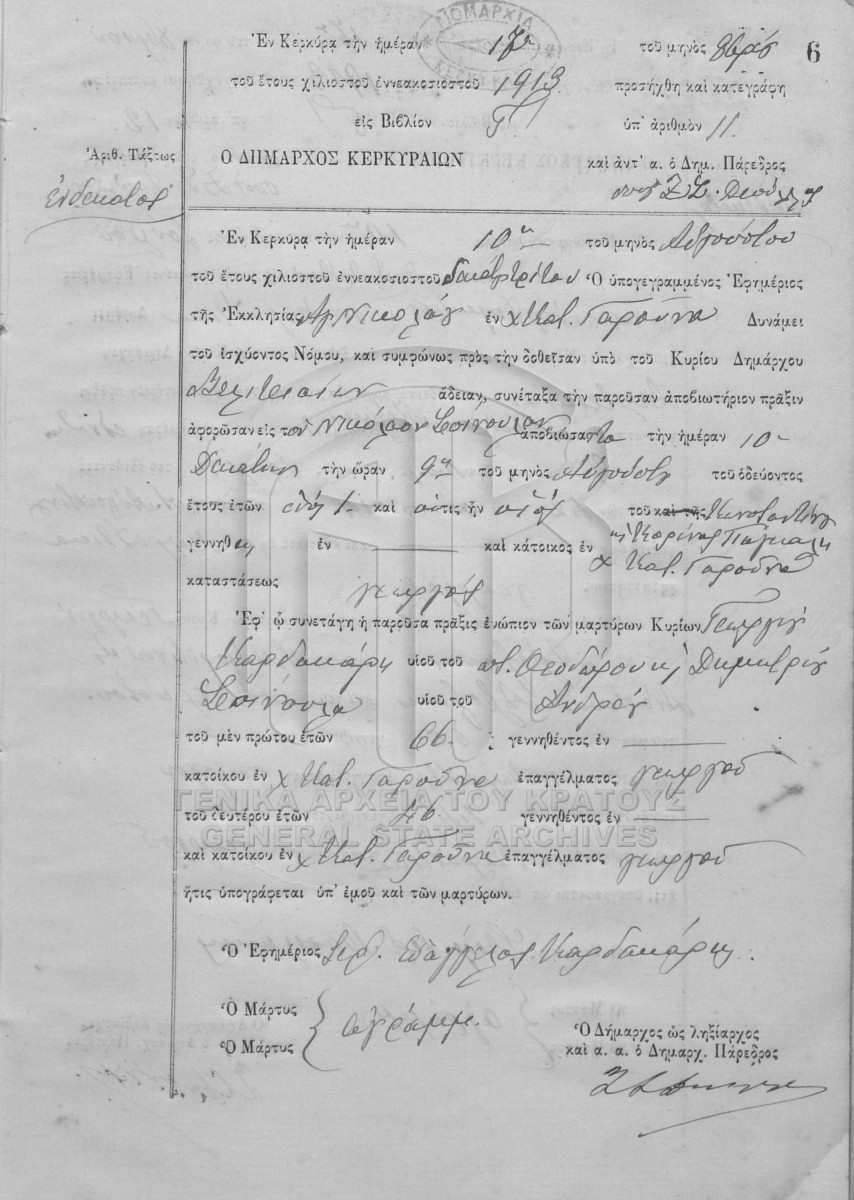 ΝΟΜΑΡΧΙΑ
6
Ἐν Κερκύρᾳ τὴν ἡμέραν 17ῃ τοῦ μηνὸς 8βρίου
τοῦ ἔτους χιλιοστοῦ ἐννεακοσιοστοῦ 1913 προσήχθη καὶ κατεγράφη
εἰς Βιβλίον ὑπ' ἀριθμὸν 11.
Ἀριθ. Τάξεως
Ὁ ΔΗΜΑΡΧΟΣ ΚΕΡΚΥΡΑΙΩΝ καὶ ἀντ' α. ὁ Δημ. Πάρεδρος
ἑνδέκατος
Ἐν Κερκύρᾳ τὴν ἡμέραν 10ην τοῦ μηνὸς Αὐγούστου
τοῦ ἔτους χιλιοστοῦ ἐννεακοσιοστοῦ δεκάτου τρίτου Ὁ ὑπογεγραμμένος Ἐφημέριος
τῆς Ἐκκλησίας Ἁγ. Νικολάου ἐν χ Κατ. Γαρούνα Δυνάμει
τοῦ ἰσχύοντος Νόμου, καὶ συμφώνως πρὸς τὴν δοθεῖσαν ὑπὸ τοῦ Κυρίου Δημάρχου
ἄδειαν, συνέταξα τὴν παροῦσαν ἀποβιωτήριον πρᾶξιν
ἀφορῶσαν εἰς τὸν Νικόλαον ἀποβιώσαντα τὴν ἡμέραν 10
Δεκάτην τὴν ὥραν 9ην τοῦ μηνὸς Αὐγούστου τοῦ ὁδεύοντος
ἔτους ἐτῶν ἑνὸς 1. καὶ ὅστις ἦν υἱὸς τοῦ καὶ τῆς Κωνσταντίνου
γεννηθεὶς ἐν καὶ κάτοικος ἐν
χ Κατ. Γαρούνα
καταστάσεως γεωργὸς
Ἐφ' ᾧ συνετάγη ἡ παροῦσα πρᾶξις ἐνώπιον τῶν μαρτύρων Κυρίων Γεωργίου
Καρδακάρη υἱοῦ τοῦ ποτ. Θεοδώρου κ Δημητρίου
υἱοῦ τοῦ Ἀνδρέου
τοῦ μὲν πρώτου ἐτῶν 66. γεννηθέντος ἐν
κατοίκου ἐν χ Κατ. Γαρούνα ἐπαγγέλματος γεωργοῦ
ΓΕΝΙΚΑ ΑΡΧΕΙΑ ΤΟΥ ΚΡΑΤΟΥΣ
τοῦ δευτέρου ἐτῶν 46 γεννηθέντος ἐν
GENERAL STATE ARCHIVES
καὶ κατοίκου ἐν χ Κατ. Γαρούνα ἐπαγγέλματος γεωργοῦ
ἥτις ὑπογράφεται ὑπ' ἐμοῦ καὶ τῶν μαρτύρων.
Ὁ Ἐφημέριος Ἱερ. Εὐάγγελος Καρδακάρης
Ὁ Μάρτυς
ἀγράμμ.
Ὁ Μάρτυς
Ὁ Δήμαρχος ὡς ληξίαρχος
καὶ α. α. ὁ Δημαρχ. Πάρεδρος